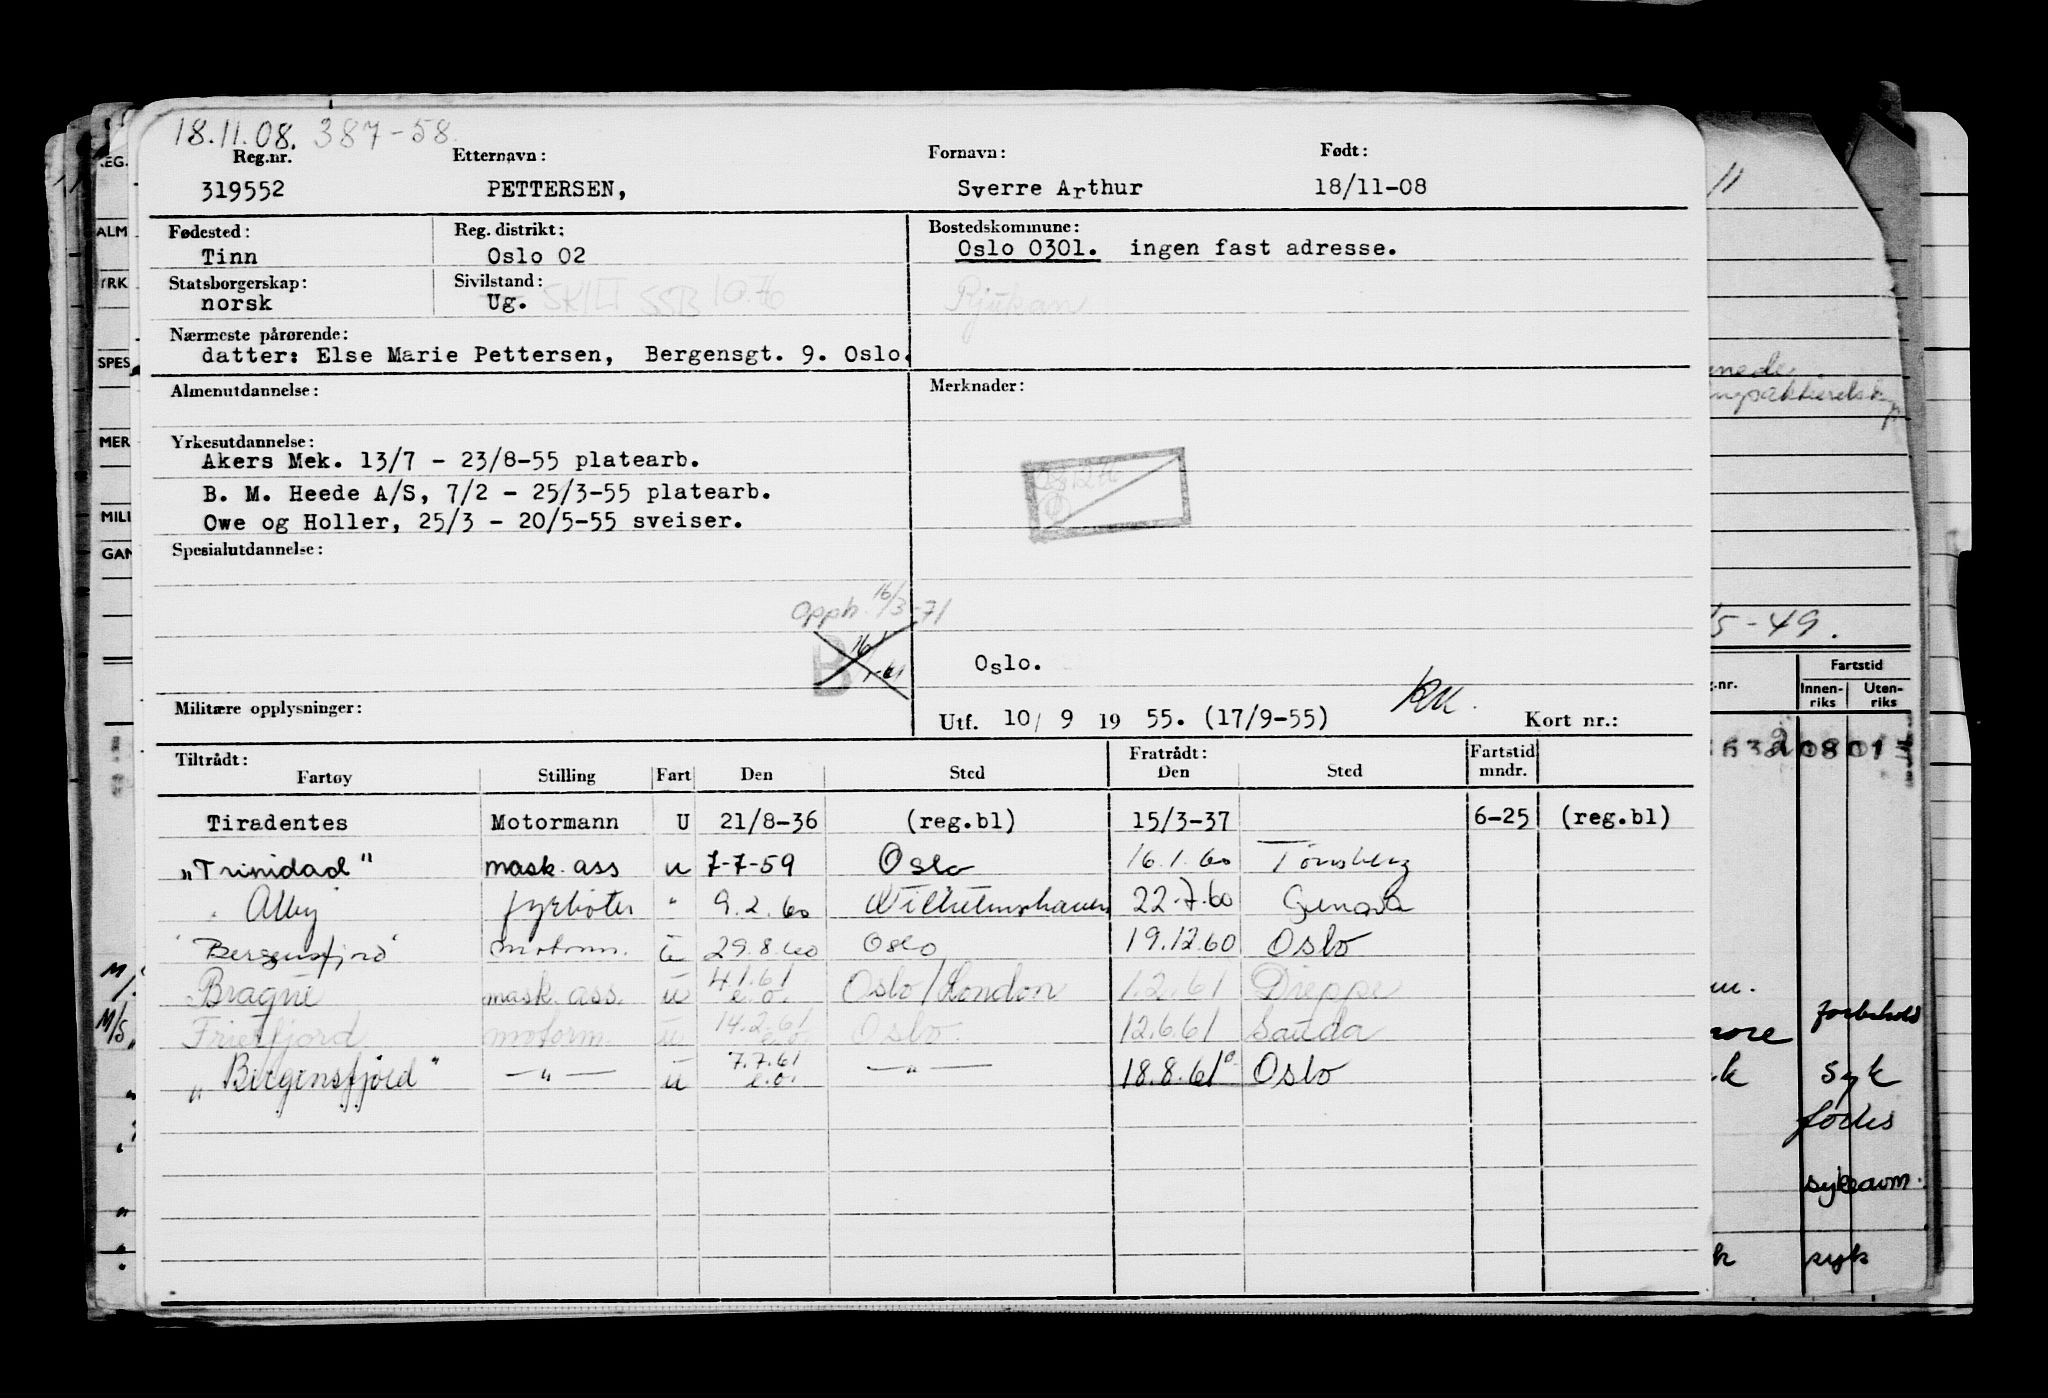 18.11.08. 387-58.
Reg.nr. Etternavn: Fornavn: Født:
319552 PETTERSEN, Sverre Arthur 18/11-08
Fødested: Reg. distrikt: Bostedskommune:
Tinn Oslo 02 Oslo 0301. ingen fast adresse.
Statsborgerskap: Sivilstand:
norsk Ug. SKILT SSB 10.70 Rjukan
Nærmeste pårørende:
datter: Else Marie Pettersen, Bergensgt. 9. Oslo.
Almenutdannelse: Merknader:
Yrkesutdannelse:
Akers Mek. 13/7 - 23/8-55 platearb.
B. M. Heede A/S, 7/2 - 25/3-55 platearb.
Owe og Holler, 25/3 - 20/5-55 sveiser.
Spesialutdannelse:
Opph. 16/3-71
B
Oslo.
Militære opplysninger: Utf. 10/ 9 19 55. (17/9-55) Kort nr.:
Tiltrådt: Fratrådt: Fartstid
Fartøy Stilling Fart Den Sted Den Sted mndr.
Tiradentes Motormann U 21/8-36 (reg.bl) 15/3-37 6-25 (reg.bl)
„Trinidad" mask. ass u 7-7-59 Oslo 16.1.60 Tønsberg
Alby fyrbøter " 9.2.60 Wilhelmshaven 22.7.60 Genova
Bergensfjord motorm. u 29.8.60 Oslo 19.12.60 Oslo
Bragne mask. ass. u 4.1.61 e.o. Oslo/London 1.2.61 Dieppe
Frierfjord motorm u 14.2.61 e.o. Oslo. 12.6.61 Sauda
„Bergensfjord" —"— u 7.7.61 e.o. —"— 18.8.61 Oslo
REG.
ALM
YRK
SPES
MER
MILI
GAN
M/
M/S
15-49.
Fartstid
Innen- Uten-
riks riks
forbehold
syk
sykeavm.
syk